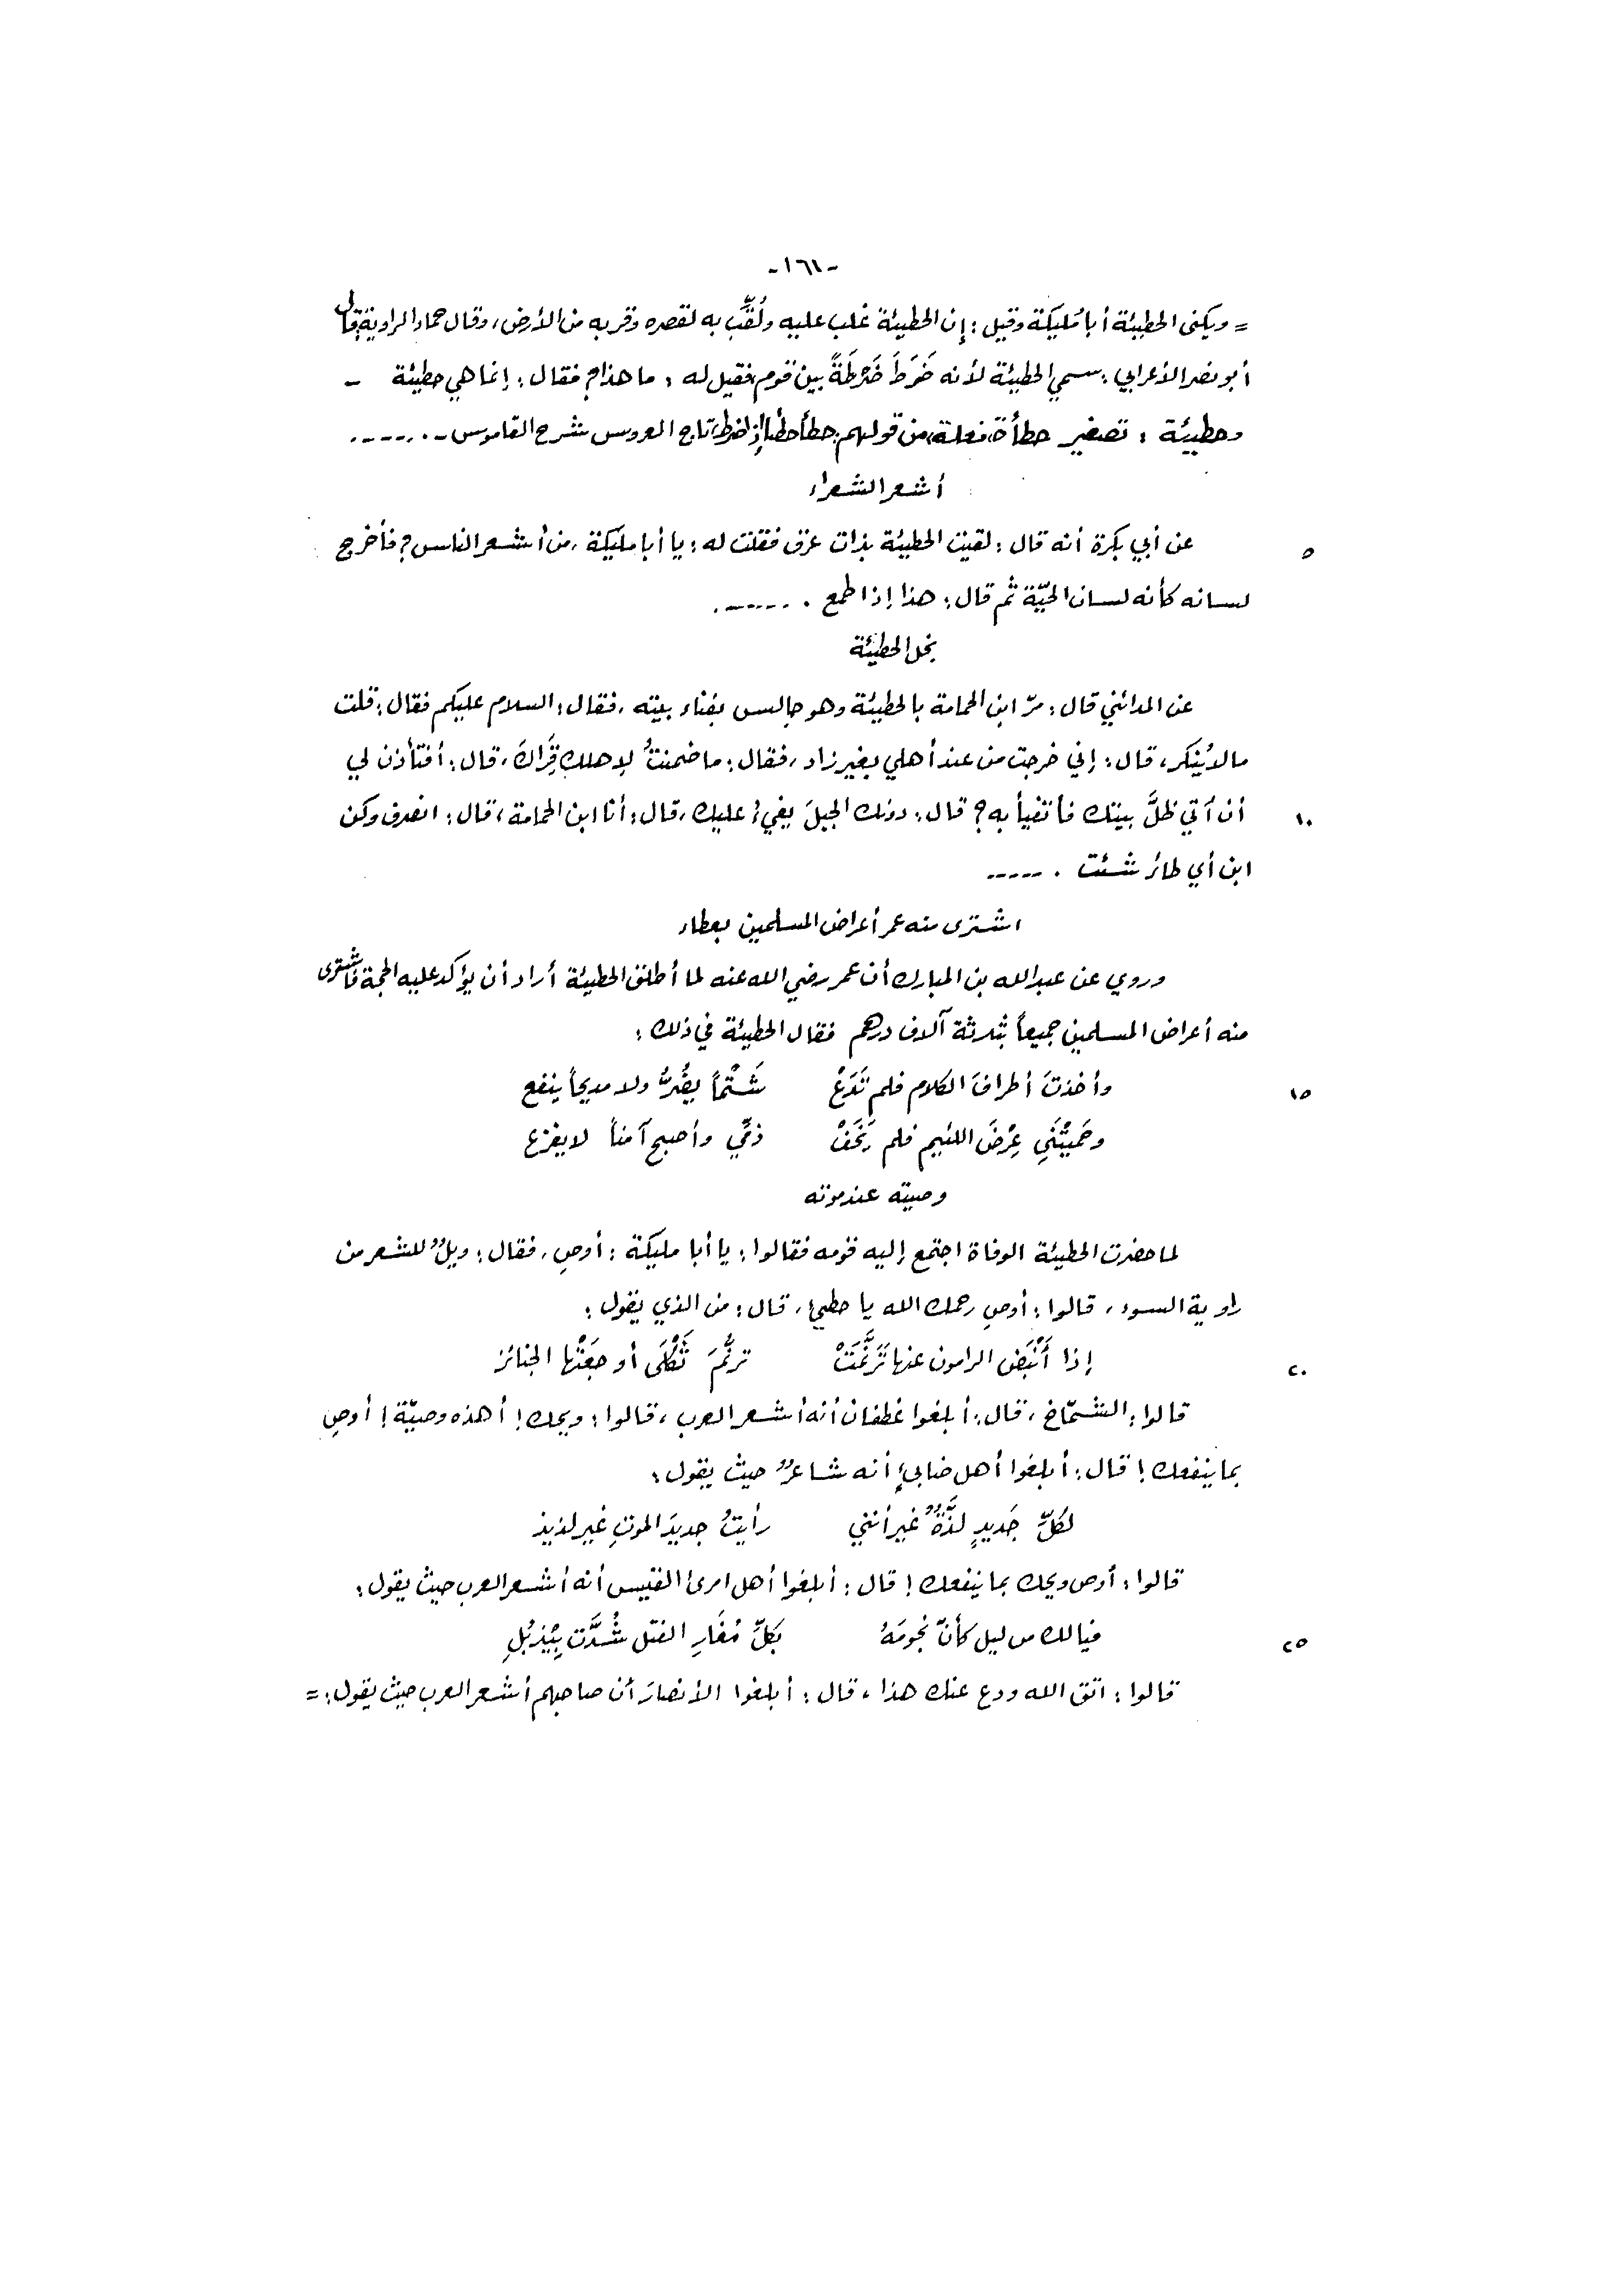 -١٦١-
= ويكنى الحطيئة أبا مُليكة وقيل: إن الحطيئة غلب عليه ولُقِّب به لقصره وقربه من الأرض، وقال حماد الراوية: قال
أبو نصر الأعرابي: سمي الحطيئة لأنه ضَرَطَ ضَرْطَةً بين قوم، فقيل له: ما هذا؟ فقال: إنما هي حطيئة -
وحطيئة: تصغير حطأة، فعلة، من قولهم: حطأ حطأً إذا ضرط، تاج العروس شرح القاموس -. -----
أشعر الشعراء
٥ عن أبي بكرة أنه قال: لقيت الحطيئة بذات عرق فقلت له: يا أبا مليكة، من أشعر الناس؟ فأخرج
لسانه كأنه لسان الحيّة ثم قال: هذا إذا طمع . ------
بخل الحطيئة
عن المدائني قال: مرّ ابن الحمامة بالحطيئة وهو جالس بفناء بيته، فقال: السلام عليكم فقال: قلت
مالا يُنكر، قال: إني خرجت من عند أهلي بغير زاد، فقال: ما ضمنتُ لأهلك قِرَاكَ، قال: أفتأذن لي
١٠ أن آتي ظلَّ بيتك فأتفيأ به؟ قال: دونك الجبلَ يفيءُ عليك، قال: أنا ابن الحمامة، قال: انصرف وكن
ابن أي طائر شئت . -----
اشترى منه عمر أعراض المسلمين بعطاء
وروي عن عبدالله بن المبارك أن عمر رضي الله عنه لما أطلق الحطيئة أراد أن يؤكد عليه الحجة فاشترى
منه أعراض المسلمين جميعاً بثلاثة آلاف درهم فقال الحطيئة في ذلك:
١٥ وأخذتَ أطرافَ الكلام فلم تَدَعْ شَتْماً يضُرُّ ولا مديحاً ينفع
وحَميْتَني عِرْضَ اللئيم فلم يَخَفْ ذمّي وأصبح آمناً لا يفزع
وصيته عند موته
لما حضرت الحطيئة الوفاة اجتمع إليه قومه فقالوا: يا أبا مليكة: أوصِ، فقال: ويلٌ للشعر من
راوية السوء، قالوا: أوصِ رحمك الله يا حطيء، قال: من الذي يقول:
٢٠ إذا أَنْبَضَ الرامون عنها تَرَنَّمَتْ ترنُّمَ ثَكْلَى أوجعَتْها الجنائز
قالوا: الشمّاخ، قال: أبلغوا غطفان أنه أشعر العرب، قالوا: ويحك! أهذه وصيّة! أوصِ
بما ينفعك! قال: أبلغوا أهل ضابيءٍ أنه شاعرٌ حيث يقول:
لكلِّ جَديدٍ لذَّةٌ غير أنني رأيتُ جديدَ الموتِ غير لذيذ
قالوا: أوص ويحك بما ينفعك! قال: أبلغوا أهل امرئ القيس أنه أشعر العرب حيث يقول:
٢٥ فيا لك من ليل كأنّ نجومَهُ بكلِّ مُغَارِ الفتل شُدَّت بِيَذْبُلِ
قالوا: اتق الله ودع عنك هذا، قال: أبلغوا الأنصارَ أن صاحبهم أشعر العرب حيث يقول: =